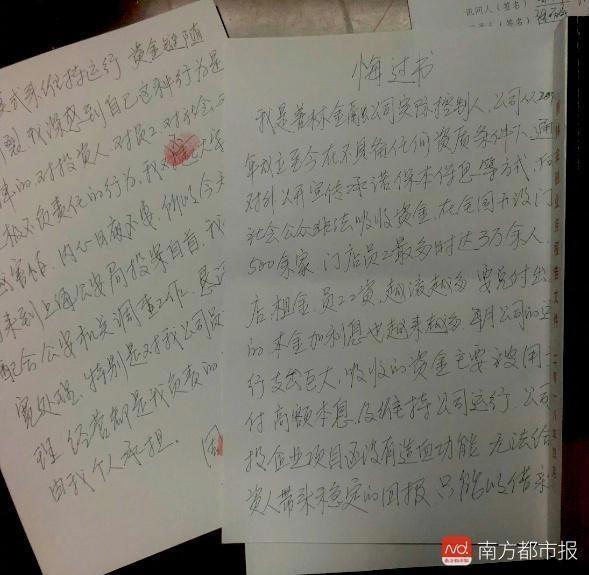 讯问人（签名）
悔过书
我是善林金融公司实际控制人，公司从
年成立至今在不具备任何资质条件下，通
对外公开宣传承诺保本付息等方式，向
社会公众非法吸收资金，在全国开设门
500余家，门店员工最多时达3万余人，
店租金、员工工资，越滚越多，要兑付出
的本金加利息也越来越多，每月公司的运
行支出巨大，吸收的资金主要被用
付高额本息，及维持公司运行，公司
投企业项目还没有造血功能，无法给
资人带来稳定的回报，只能以借新
式来维持运行，资金链随
裂，我深感到自己这种行为是
的，对投资人、对员工、对社会
极不负责任的行为，我
害怕，内心日夜不安，所以今天
来到上海公安局投案自首，我
配合公安机关调查工作，恳
宽处理，特别是对我公司员
经营都是我负责的
由我个人承担。
周
南方都市报